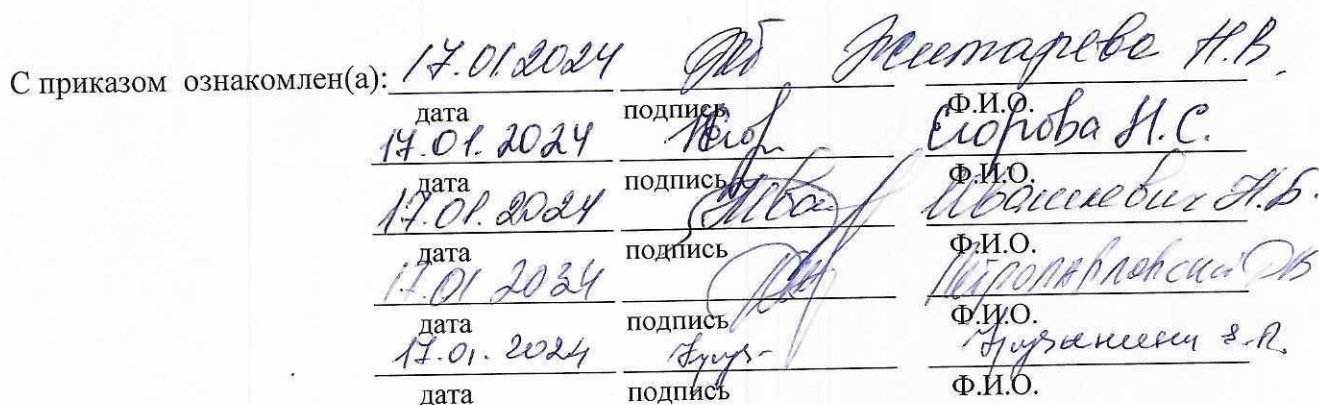 С приказом ознакомлен(а): 17.01.2024 Житарева Н.В.
дата подпись Ф.И.О.
17.01.2024 Егорова Н.С.
дата подпись Ф.И.О.
17.01.2024 Ивашкевич Н.Б.
дата подпись Ф.И.О.
17.01 2024 Петропавловский
дата подпись Ф.И.О.
17.01.2024
дата подпись Ф.И.О.